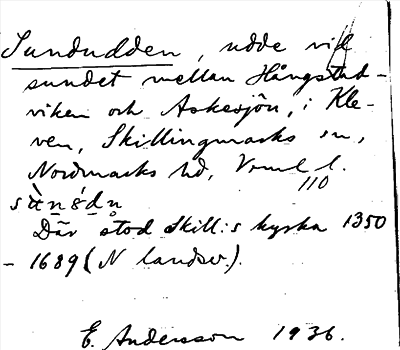 Sundudden, udde vid
sundet mellan Hångstad-
viken och Askesjön, i Kle-
ven, Skillingmarks sn,
Nordmarks hd, Verml. l.
110
sùn̲s̀d̲n̥
Där stod Skill:s kyrka 1350
- 1689 (N landsv).
E. Andersson 1936.